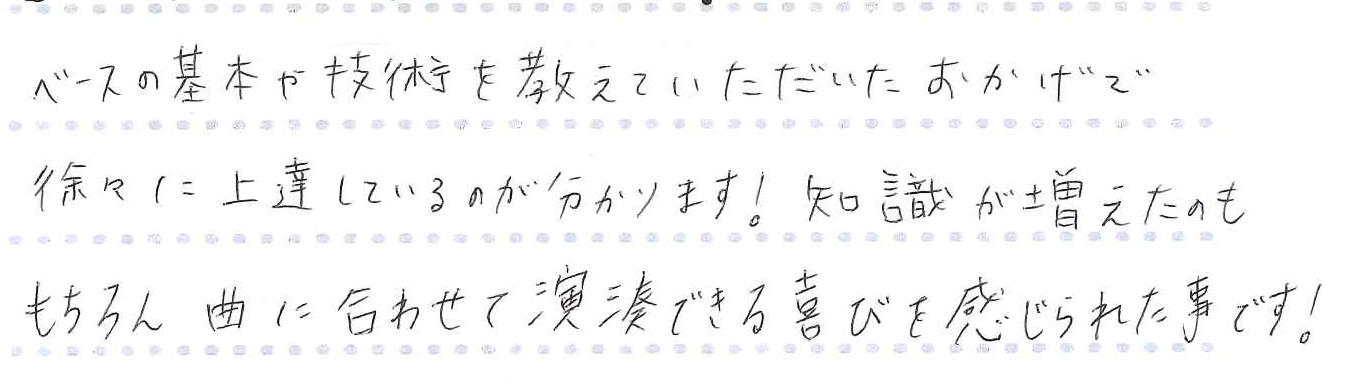 ベースの基本や技術を教えていただいたおかげで
徐々に上達しているのが分かります！知識が増えたのも
もちろん曲に合わせて演湊できる喜びを感じられた事です！